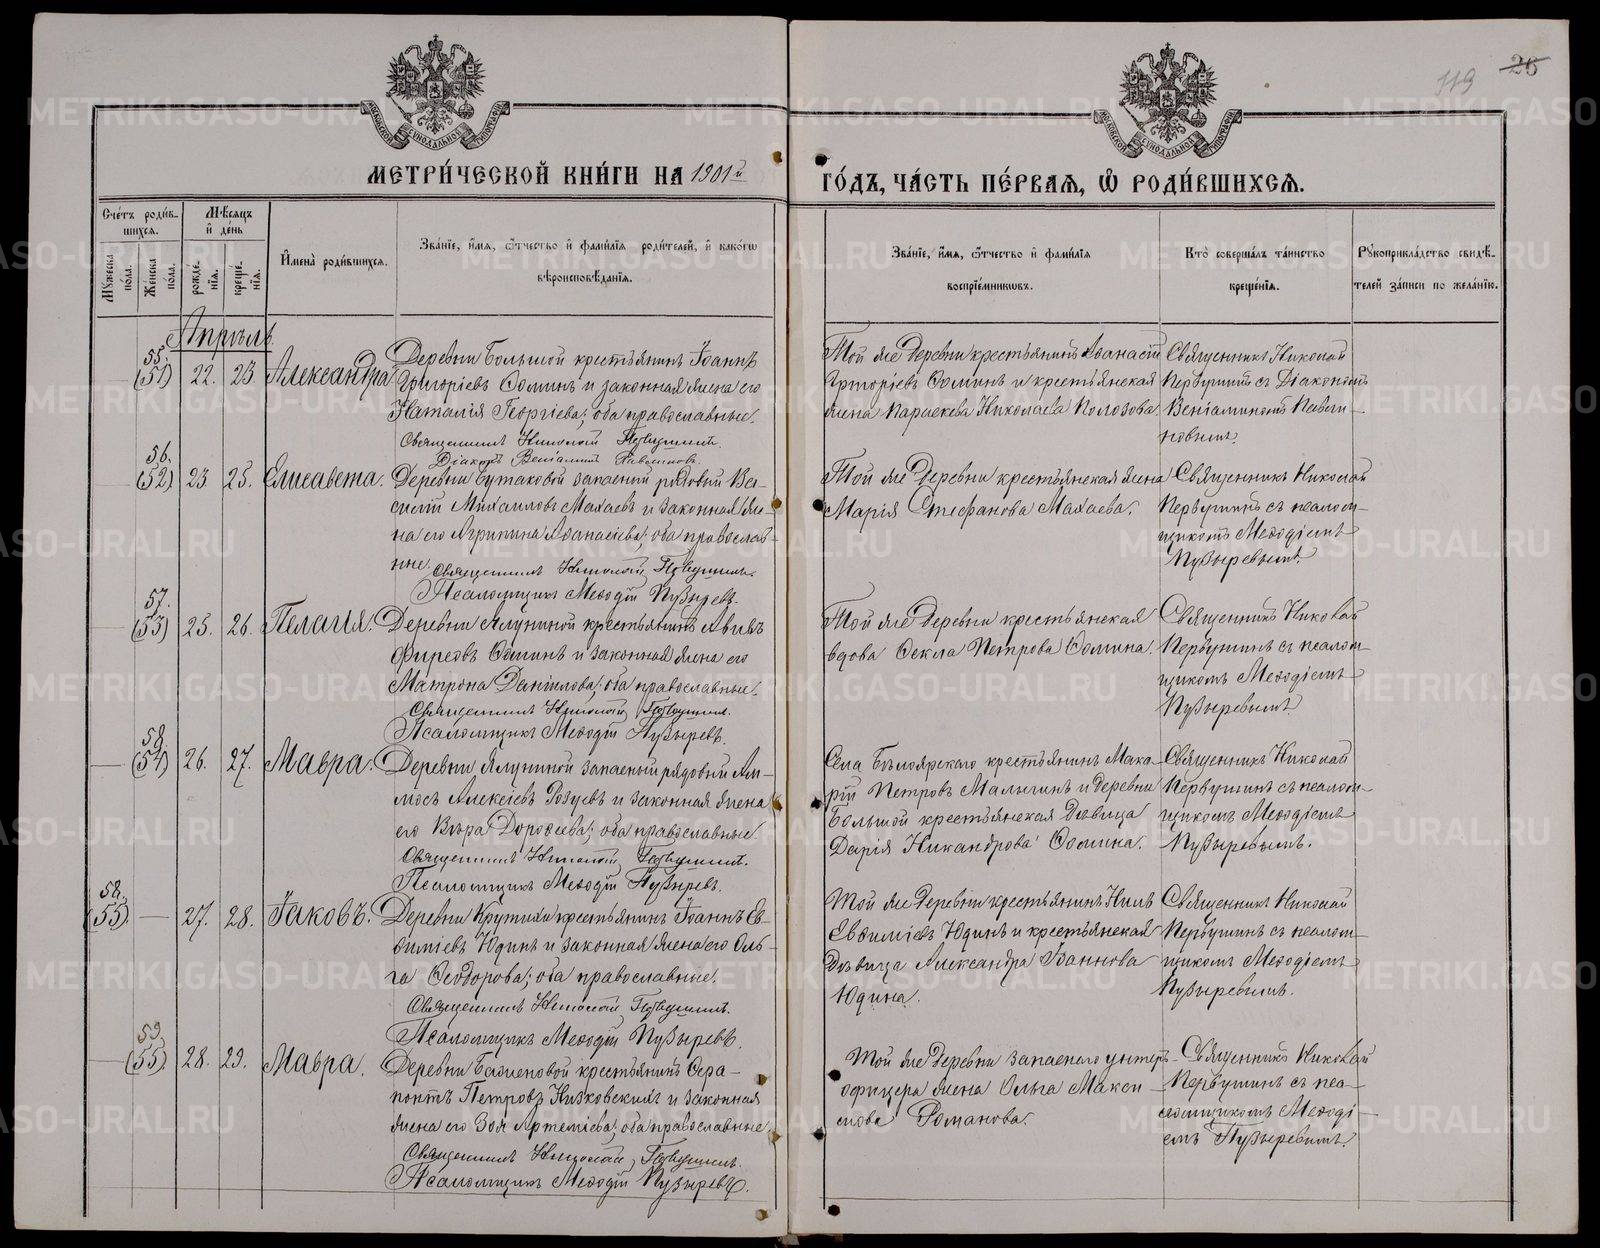 119 26
МЕТРИ́ЧЕСКОЙ КНИ́ГИ НА 1901й
ГО́ДЪ, ЧА́СТЬ ПЕ́РВАЯ, Ѽ РОДИ́ВШИХСЯ.
Сче́тъ роди́в-
шихся.
Мꙋ́жеска по́ла.
Же́нска по́ла.
Мѣ́сяцъ и҆ де́нь
рожде́нїя.
креще́нїя.
И҆мена̀ роди́вшихся.
Зва́нїе, и҆́мя, ѻ҆́тчество и҆ фами́лїя роди́телей, и҆ како́гѡ
вѣроисповѣ́данїя.
Зва́нїе, и҆́мя, ѻ҆́тчество и҆ фами́лїя
воспрїе́мникѡвъ.
Кто̀ соверша́лъ та́инство
креще́нїя.
Рꙋкоприкла́дство свидѣ́-
телей за́писи по жела́нїю.
Апрѣль.
55.
(51) 22. 23. Александра
Деревни Большой крестьянинъ Іоаннъ
Григоріевъ Ѳоминъ и законная жена его
Наталія Георгіева; оба православные.
Священникъ Николай Первушинъ.
Діаконъ Веніаминъ Павлиновъ.
Той же деревни крестьянинъ Аѳанасій
Григоріевъ Ѳоминъ и крестьянская
жена Параскева Николаева Полозова.
Священникъ Николай
Первушинъ съ Діакономъ
Веніаминомъ Павли-
новымъ.
56.
(52) 23 25. Елисавета.
Деревни Бутаковой запасный рядовый Ва-
силій Михаиловъ Махаевъ и законная же-
на его Агрипина Аѳанасіева; оба православ-
ные. Священникъ Николай Первушинъ.
Псаломщикъ Меѳодій Пузыревъ.
Той же деревни крестьянская жена
Марія Стефанова Махаева.
Священникъ Николай
Первушинъ съ псалом-
щикомъ Меѳодіемъ
Пузыревымъ.
57.
(53) 25. 26. Пелагія.
Деревни Ялуниной крестьянинъ Авивъ
Фирсовъ Ѳоминъ и законная жена его
Матрона Даніилова; оба православные.
Священникъ Николай Первушинъ.
Псаломщикъ Меѳодій Пузыревъ.
Той же деревни крестьянская
вдова Ѳекла Петрова Ѳомина.
Священникъ Николай
Первушинъ съ псалом-
щикомъ Меѳодіемъ
Пузыревымъ.
58.
(54) 26. 27. Мавра.
Деревни Ялуниной запасный рядовый Ам-
мосъ Алексіевъ и законная жена
его Вѣра Дороѳеева; оба православные.
Священникъ Николай Первушинъ.
Псаломщикъ Меѳодій Пузыревъ.
Села Бѣлоярскаго крестьянинъ Мака-
рій Петровъ Малыгинъ и деревни
Большой крестьянская дѣвица
Дарія Никандрова Ѳомина.
Священникъ Николай
Первушинъ съ псалом-
щикомъ Меѳодіемъ
Пузыревымъ.
58.
(55) 27. 28. Іаковъ.
Деревни Крутихи крестьянинъ Іоаннъ Ев-
ѳиміевъ Юдинъ и законная жена его Оль-
га Ѳеодорова; оба православные.
Священникъ Николай Первушинъ.
Псаломщикъ Меѳодій Пузыревъ.
Той же деревни крестьянинъ Нилъ
Евѳиміевъ Юдинъ и крестьянская
дѣвица Александра Іоаннова
Юдина.
Священникъ Николай
Первушинъ съ псалом-
щикомъ Меѳодіемъ
Пузыревымъ.
59.
(55) 28. 29. Мавра.
Деревни Баженовой крестьянинъ Ѳера-
понтъ Петровъ Низковскихъ и законная
жена его Зоя Артеміева; оба православные.
Священникъ Николай Первушинъ.
Псаломщикъ Меѳодій Пузыревъ.
Той же деревни запаснаго унтеръ-
офицера жена Ольга Макси-
мова Романова.
Священникъ Николай
Первушинъ съ пса-
ломщикомъ Меѳоді-
емъ Пузыревымъ.
METRIKI.GASO-URAL.RU